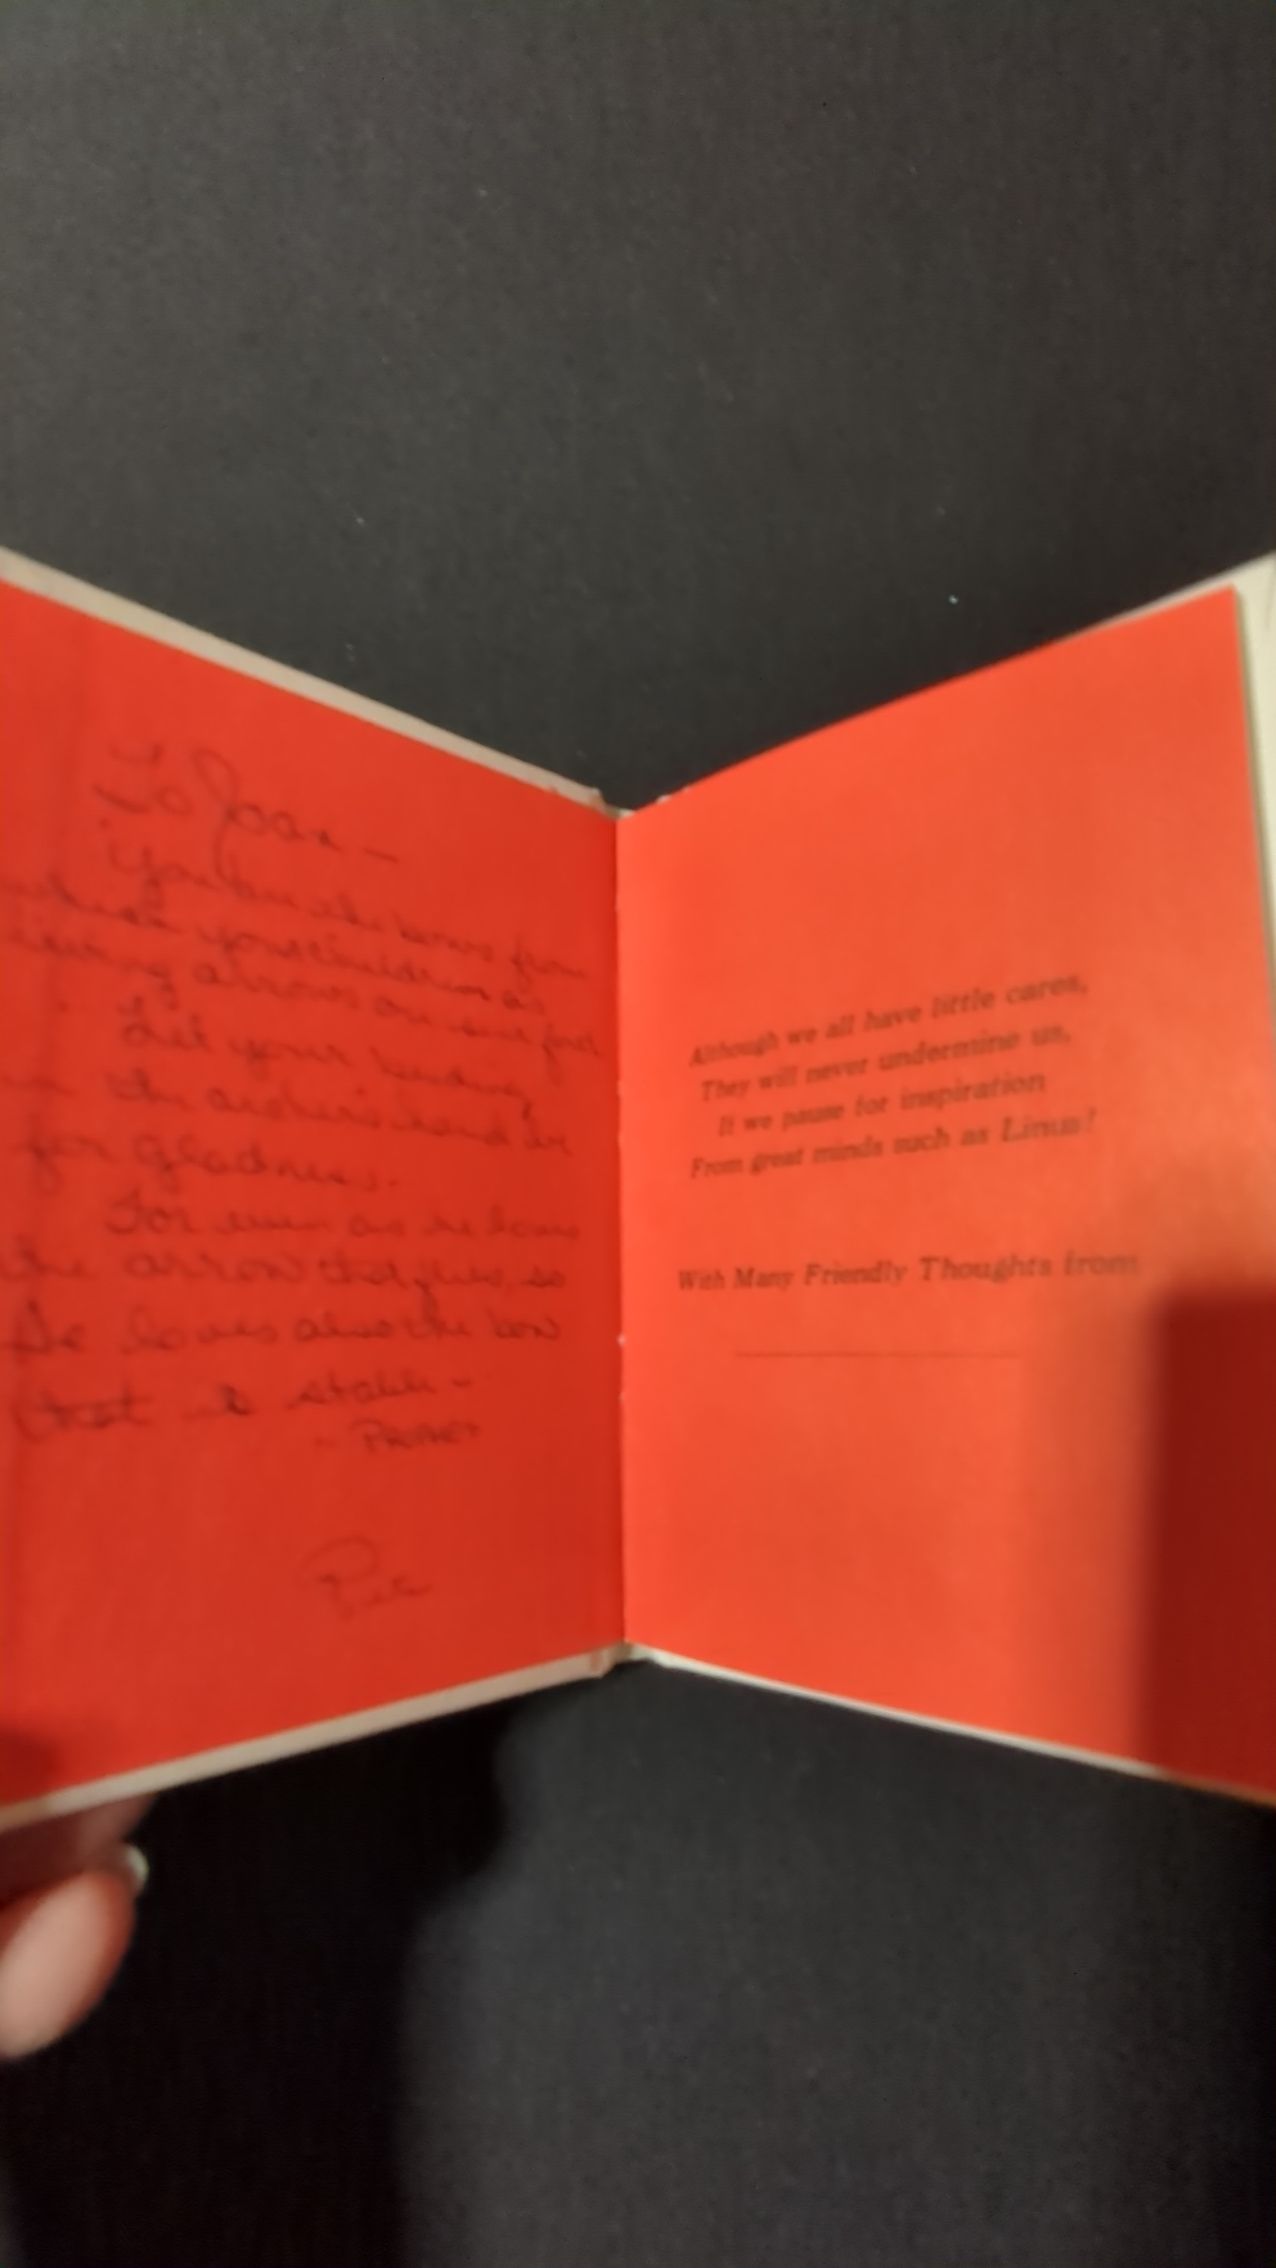 To Joan —
You are the bows from
which your children as
living arrows are sent forth
Let your bending
in the archer's hand be
for gladness.
For even as he loves
the arrow that flies, so
He loves also the bow
that is stable -
- PROPHET
Although we all have little cares,
They will never undermine us,
If we pause for inspiration
From great minds such as Linus!
With Many Friendly Thoughts from